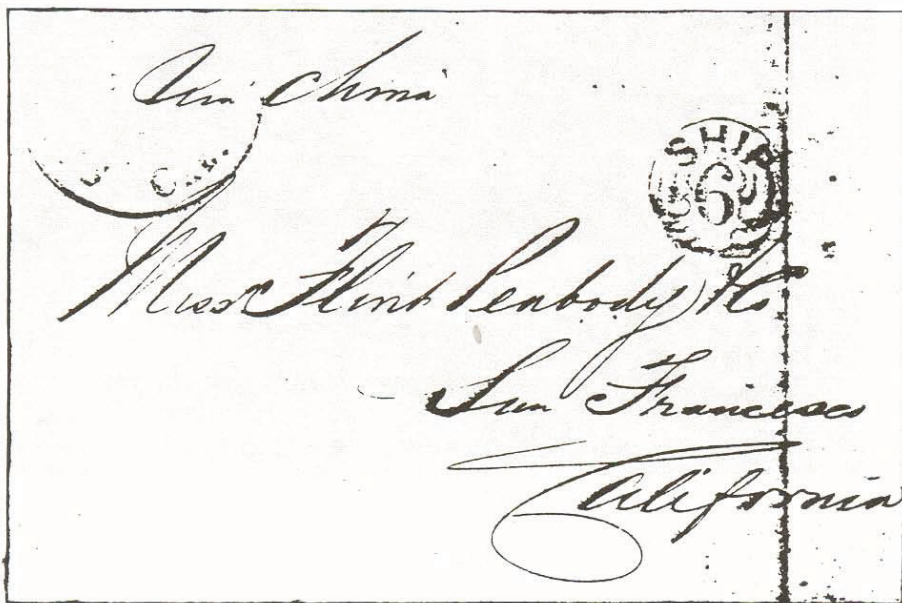 Via China
SHIP
6
Messrs Flint Peabody & Co
San Francisco
California